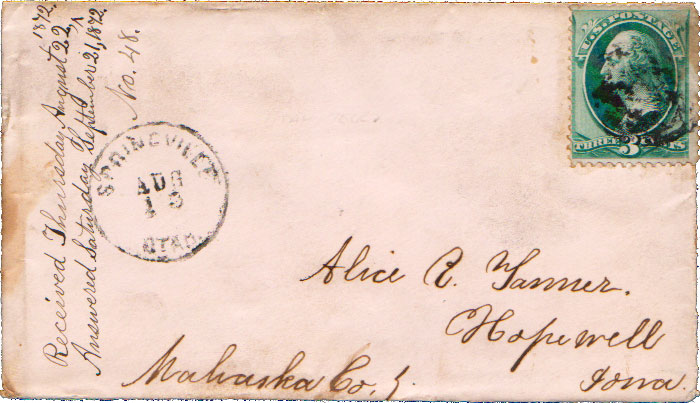 Received Thursday August 22, 1872.
Answered Saturday September 21, 1872.
No. 48.
SPRINGVILLE
AUG
UTAH.
U.S. POSTAGE
THREE 3 CENTS
Alice E. Tanner.
Hopewell
Mahaska Co.,
Iowa.